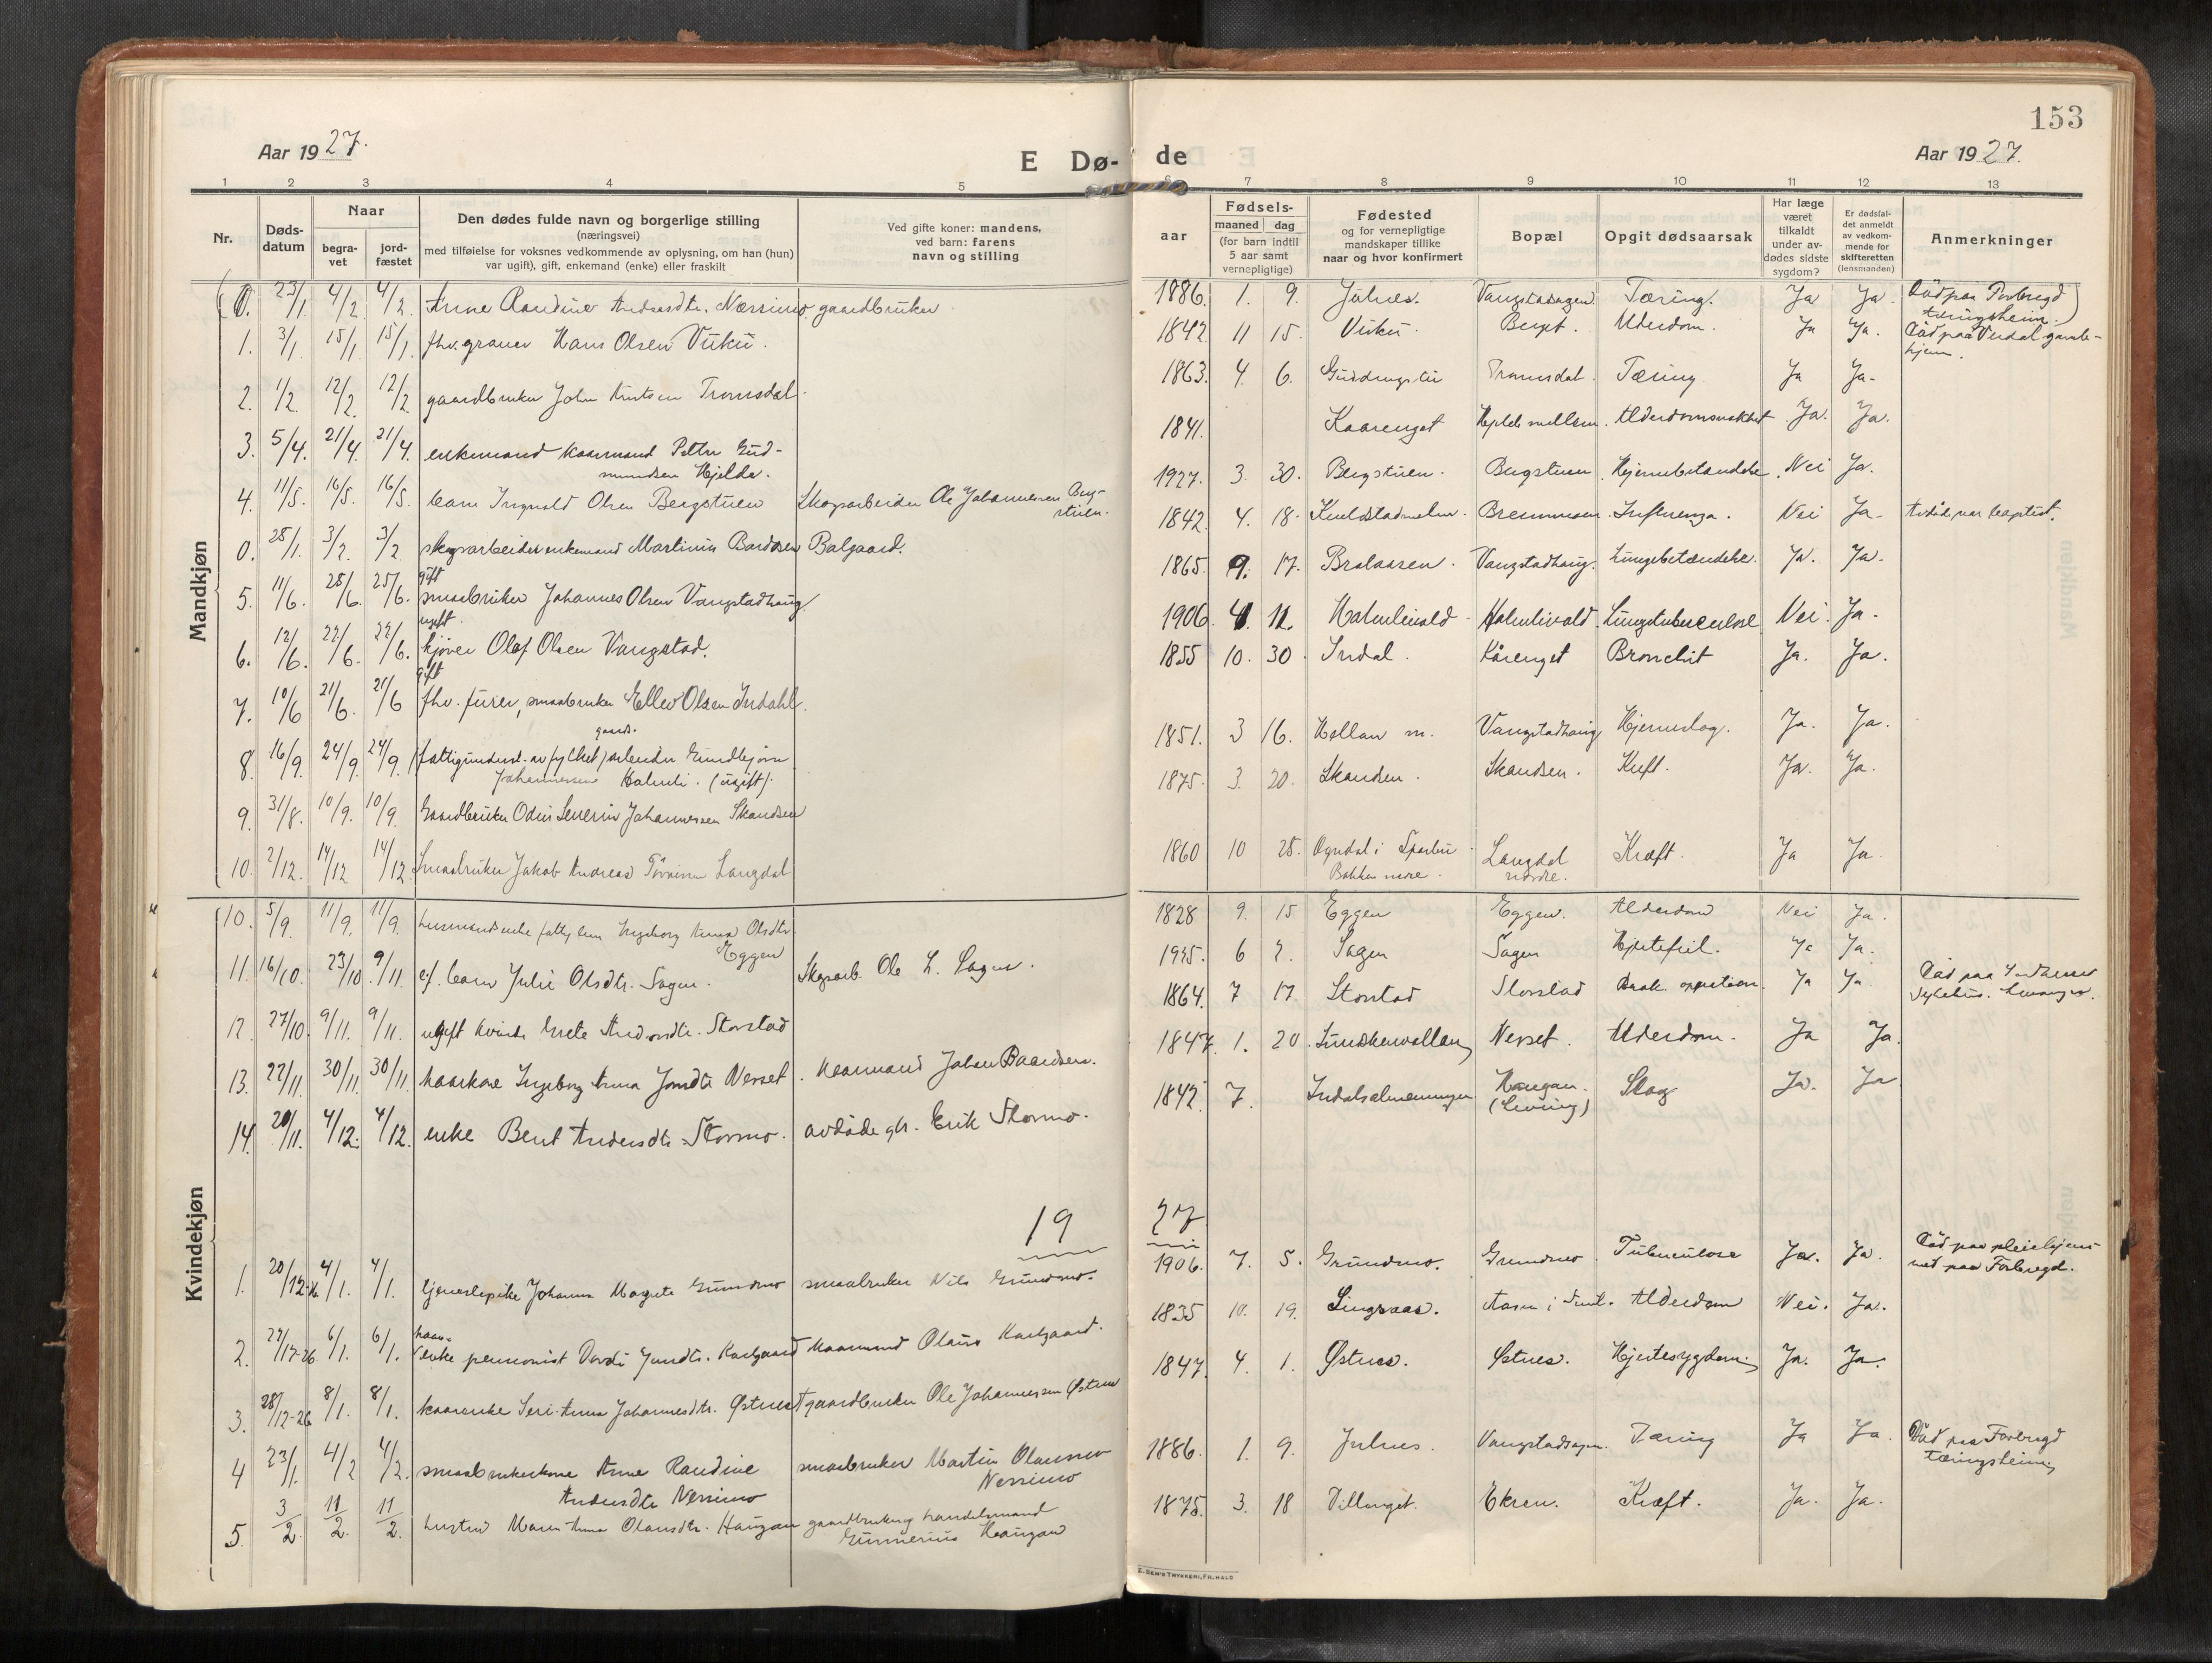 153
Aar 1927.
E Dø-
de
Aar 1927.
1 2 3 4 5 6 7 8 9 10 11 12 13
Nr.
Døds-
datum
Naar
begra-
vet
jord-
fæstet
Den dødes fulde navn og borgerlige stilling
(næringsvei)
med tilføielse for voksnes vedkommende av oplysning, om han (hun)
var ugift), gift, enkemand (enke) eller fraskilt
Ved gifte koner: mandens,
ved barn: farens
navn og stilling
aar
Fødsels-
maaned dag
(for barn indtil
5 aar samt
vernepligtige)
Fødested
og for vernepligtige
mandskaper tillike
naar og hvor konfirmert
Bopæl
Opgit dødsaarsak
Har læge
været
tilkaldt
under av-
dødes sidste
sygdom?
Er dødsfal-
det anmeldt
av vedkom-
mende for
skifteretten
(lensmanden)
Anmerkninger
Mandkjøn
0. 23/1 4/2 4/2. Anne Randine Andersdtr. Næssimo gaardbruker 1886. 1. 9. Julnes. Tæring. Ja Ja. Død paa Forbregd
tæringsheim.
1. 3/1 15/1 15/1. fhv. graver Hans Olsen Vuku. 1842. 11 15. Vuku. Berget. Alderdom. Ja Ja. Død paa Verdal gamle-
hjem.
2. 1/2. 12/2 12/2 gaardbruker John Tromsdal. 1863. 4. 6. Tromsdal. Tæring Ja Ja.
3. 5/4. 21/4 21/4. enkemand kaarmand Petter Gud-
mundsen Hjelde. 1841. Kaarenget Ja. Ja.
4. 11/5. 16/5. 16/5. barn Ingvald Olsen Bergstuen Skogsarbeider Ole Johannessen Berg-
stuen. 1927. 3. 30. Bergstuen. Bergstuen Nei Ja.
0. 28/1. 3/2. 3/2 skogsarbeider enkemand Martinus Bardosen Balgaard. 1842. 4. 18. Influenza. Nei Ja. Avdøde var baptist.
5. 11/6. 25/6. 25/6. gift
smaabruker Johannes Olsen Vangstadhaug 1865. 9. 17. Bralaasen. Vangstadhaug. Lungebetændelse. Ja. Ja.
6. 12/6. 22/6. 22/6. ugift.
Olaf Olsen Vangstad. 1906. 4. 11. Holmlivald Lungetuberculose Nei. Ja.
7. 10/6 21/6. 21/6 gift
fhv. furer, smaabruker Ellev Olsen Indahl. 1855 10. 30. Indal. Kårenget Bronchit Ja. Ja.
8. 16/9. 24/9. 24/9. gaards-
arbeider Gundbjørn
Johannessen Holmli. (ugift). 1851. 3 16. Hellan m. Vangstadhaug Hjerneslag. Ja. Ja.
9. 31/8. 10/9. 10/9. Gaardbruker Odin Severin Johannessen Skansen 1875. 3. 20. Skansen. Skansen. Kreft. Ja. Ja.
10. 2/12. 14/12 14/12. Smaabruker Jakob Andreas Langdal 1860 10 25. Ogndal i Sparbu
Bakken nedre. Langdal
nordre. Kræft. Ja Ja.
10. 5/9. 11/9. 11/9. Ingeborg Anna Olsdtr.
Eggen 1828 9. 15 Eggen Eggen. Alderdom Nei Ja.
11. 16/10. 23/10. 9/11. barn Julie Olsdtr. Sagen. Skogsarb. Ole L. Sagen. 6 2. Sagen Sagen Hjertefeil. Ja Ja.
12. 27/10. 9/11. 9/11. ugift kvinde Grete Storstad 1864. 7 17 Storstad Storstad Ja Ja. Død paa Innherred
Sykehus. Levanger.
13. 22/11. 30/11 30/11. kaarkone Ingeborg Anna Jonsdtr. Nesset. Kaarmand Johan Baardsen. 1847. 1. 20. Nesset. Alderdom. Ja Ja.
14. 20/11. 4/12. 4/12. enke Berit Andersdtr. Stormo. avdøde gbr. Erik Stormo. 1842. 7. Indalsalmenningen Haugan.
(Levring) Slag Ja. Ja
Kvindekjøn
19 27
1. 20/12-26 4/1. 4/1. tjenestepike Johanna Magrete Grundmo smaabruker Nils Grundmo. 1906. 7. 5. Grundmo. Grundmo Tuberculose Ja. Ja. Død paa pleiehjem-
met paa Forbregd.
2. 27/12-26 6/1. 6/1. kaar-
enke pensionist Jonsdtr. Karlgaard Kaarmand Olaus Karlgaard. 1835 10. 19. Alderdom Nei. Ja.
3. 28/12-26 8/1. 8/1. kaarenke Seri-Anna Johannesdtr. Østnes gaardbruker Ole Johannessen Østnes 1847. 4. 1. Østnes. Østnes. Hjertesygdom Ja. Ja.
4 23/1. 4/2 4/2. smaabrukerkone Anne Randine
Andersdtr. Nessimo smaabruker Martin Olausen
Nessimo 1886. 1. 9. Julnes. Tæring Ja Ja. Død paa Forbregd
tæringsheim
5. 3/2. 11/2. 11/2. hustru Maren Anna Olausdtr. Haugan gaardbruker og handelsmand
Gunnerius Haugan 1875. 3. 18 Ekren. Kræft. Ja. Ja.
E. SEM'S TRYKKERI, FR.HALD